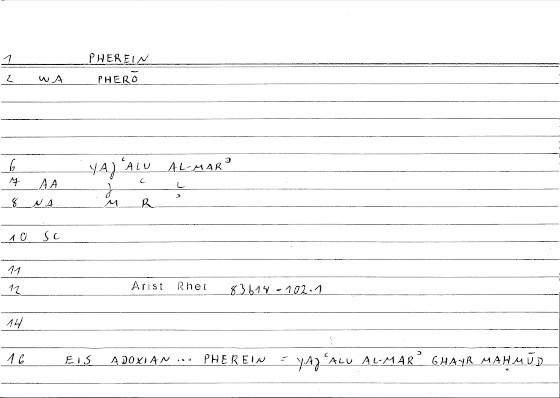 1 PHEREIN
2 WA PHERŌ
6 YAJʿALU AL-MARʾ
7 AA J ʿ L
8 NA M R ʾ
10 SC
11
12 Arist Rhet 83b14 - 102.1
14
16 EIS ADOXIAN ... PHEREIN = YAJʿALU AL-MARʾ GHAYR MAḤMŪD